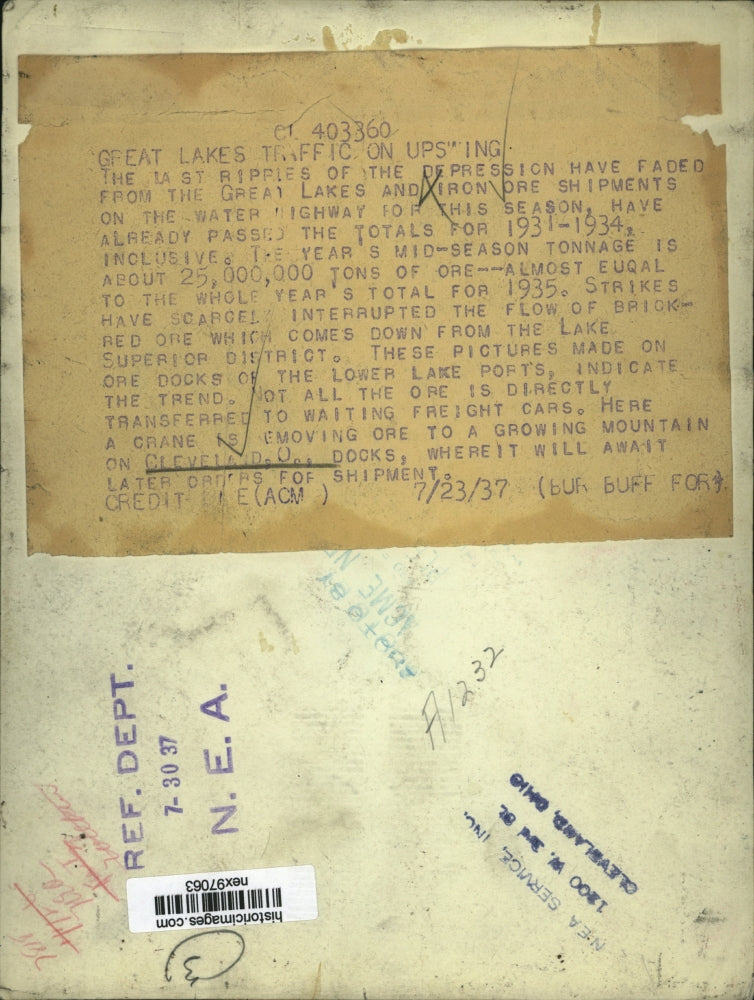 CL 403360
GREAT LAKES TRAFFIC ON UPSWING
THE LAST RIPPLES OF THE DEPRESSION HAVE FADED
FROM THE GREAT LAKES AND IRON ORE SHIPMENTS
ON THE WATER HIGHWAY FOR THIS SEASON, HAVE
ALREADY PASSED THE TOTALS FOR 1931-1934,
INCLUSIVE. THE YEAR'S MID-SEASON TONNAGE IS
ABOUT 25,000,000 TONS OF ORE--ALMOST EUQAL
TO THE WHOLE YEAR'S TOTAL FOR 1935. STRIKES
HAVE SCARCELY INTERRUPTED THE FLOW OF BRICK-
RED ORE WHICH COMES DOWN FROM THE LAKE
SUPERIOR DISTRICT. THESE PICTURES MADE ON
ORE DOCKS OF THE LOWER LAKE PORTS, INDICATE
THE TREND. NOT ALL THE ORE IS DIRECTLY
TRANSFERRED TO WAITING FREIGHT CARS. HERE
A CRANE IS REMOVING ORE TO A GROWING MOUNTAIN
ON CLEVELAND, O., DOCKS, WHEREIT WILL AWAIT
LATER ORDERS FOR SHIPMENT.
CREDIT LINE (ACM ) 7/23/37 (BUR BUFF FOR)
PHOTO BY
ACME
A1232
REF. DEPT.
7-30 37
N. E. A.
NEA SERVICE, INC.
1200 W. 3rd St.
CLEVELAND, OHIO
historicimages.com
nex97063
3